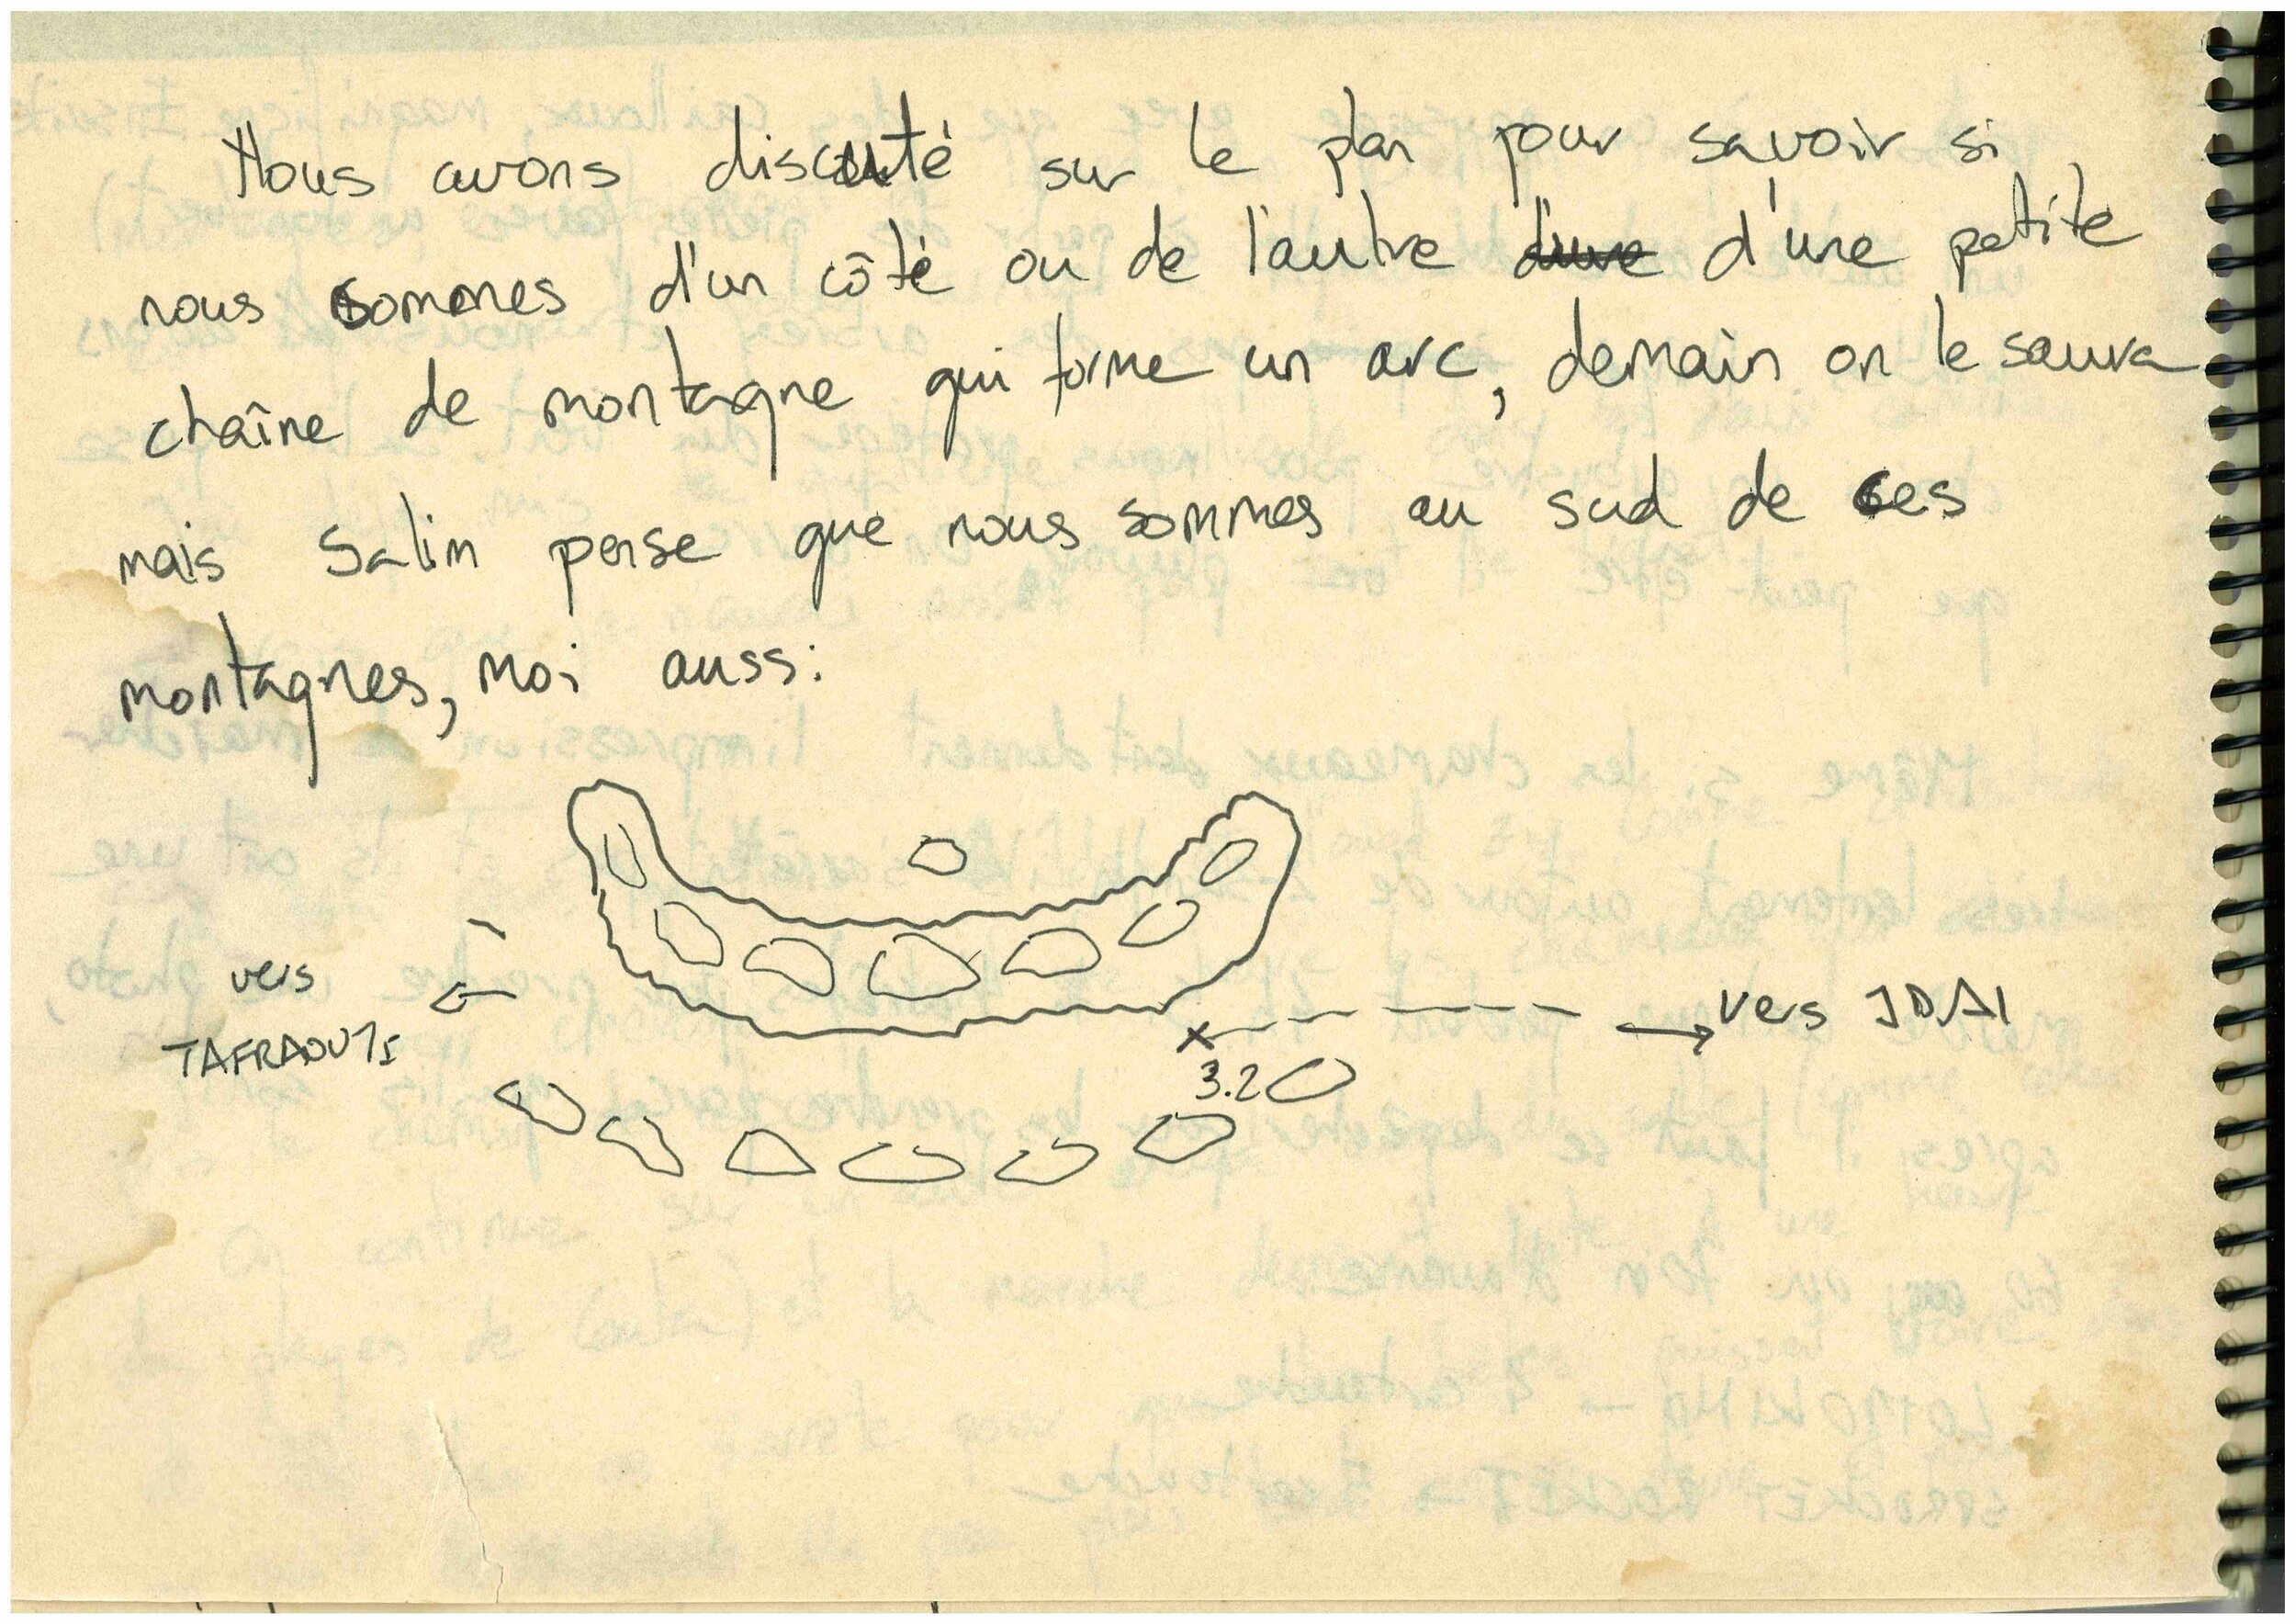 Nous avons discuté sur le plan pour savoir si
nous sommes d'un côté ou de l'autre d'une petite
chaîne de montagne qui forme un arc, demain on le saura
mais Salim pense que nous sommes au sud de ces
montagnes, moi aussi
vers
vers IDAI
3.2